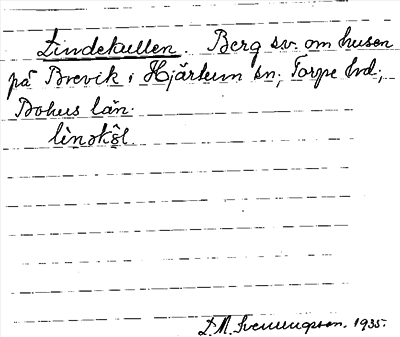 Lindekullen. Berg sv. om husen
på Brevik i Hjärtum sn, Torpe hd,
Bohus län.
lìnəkŝl.
D. M. Svenungsson. 1935.